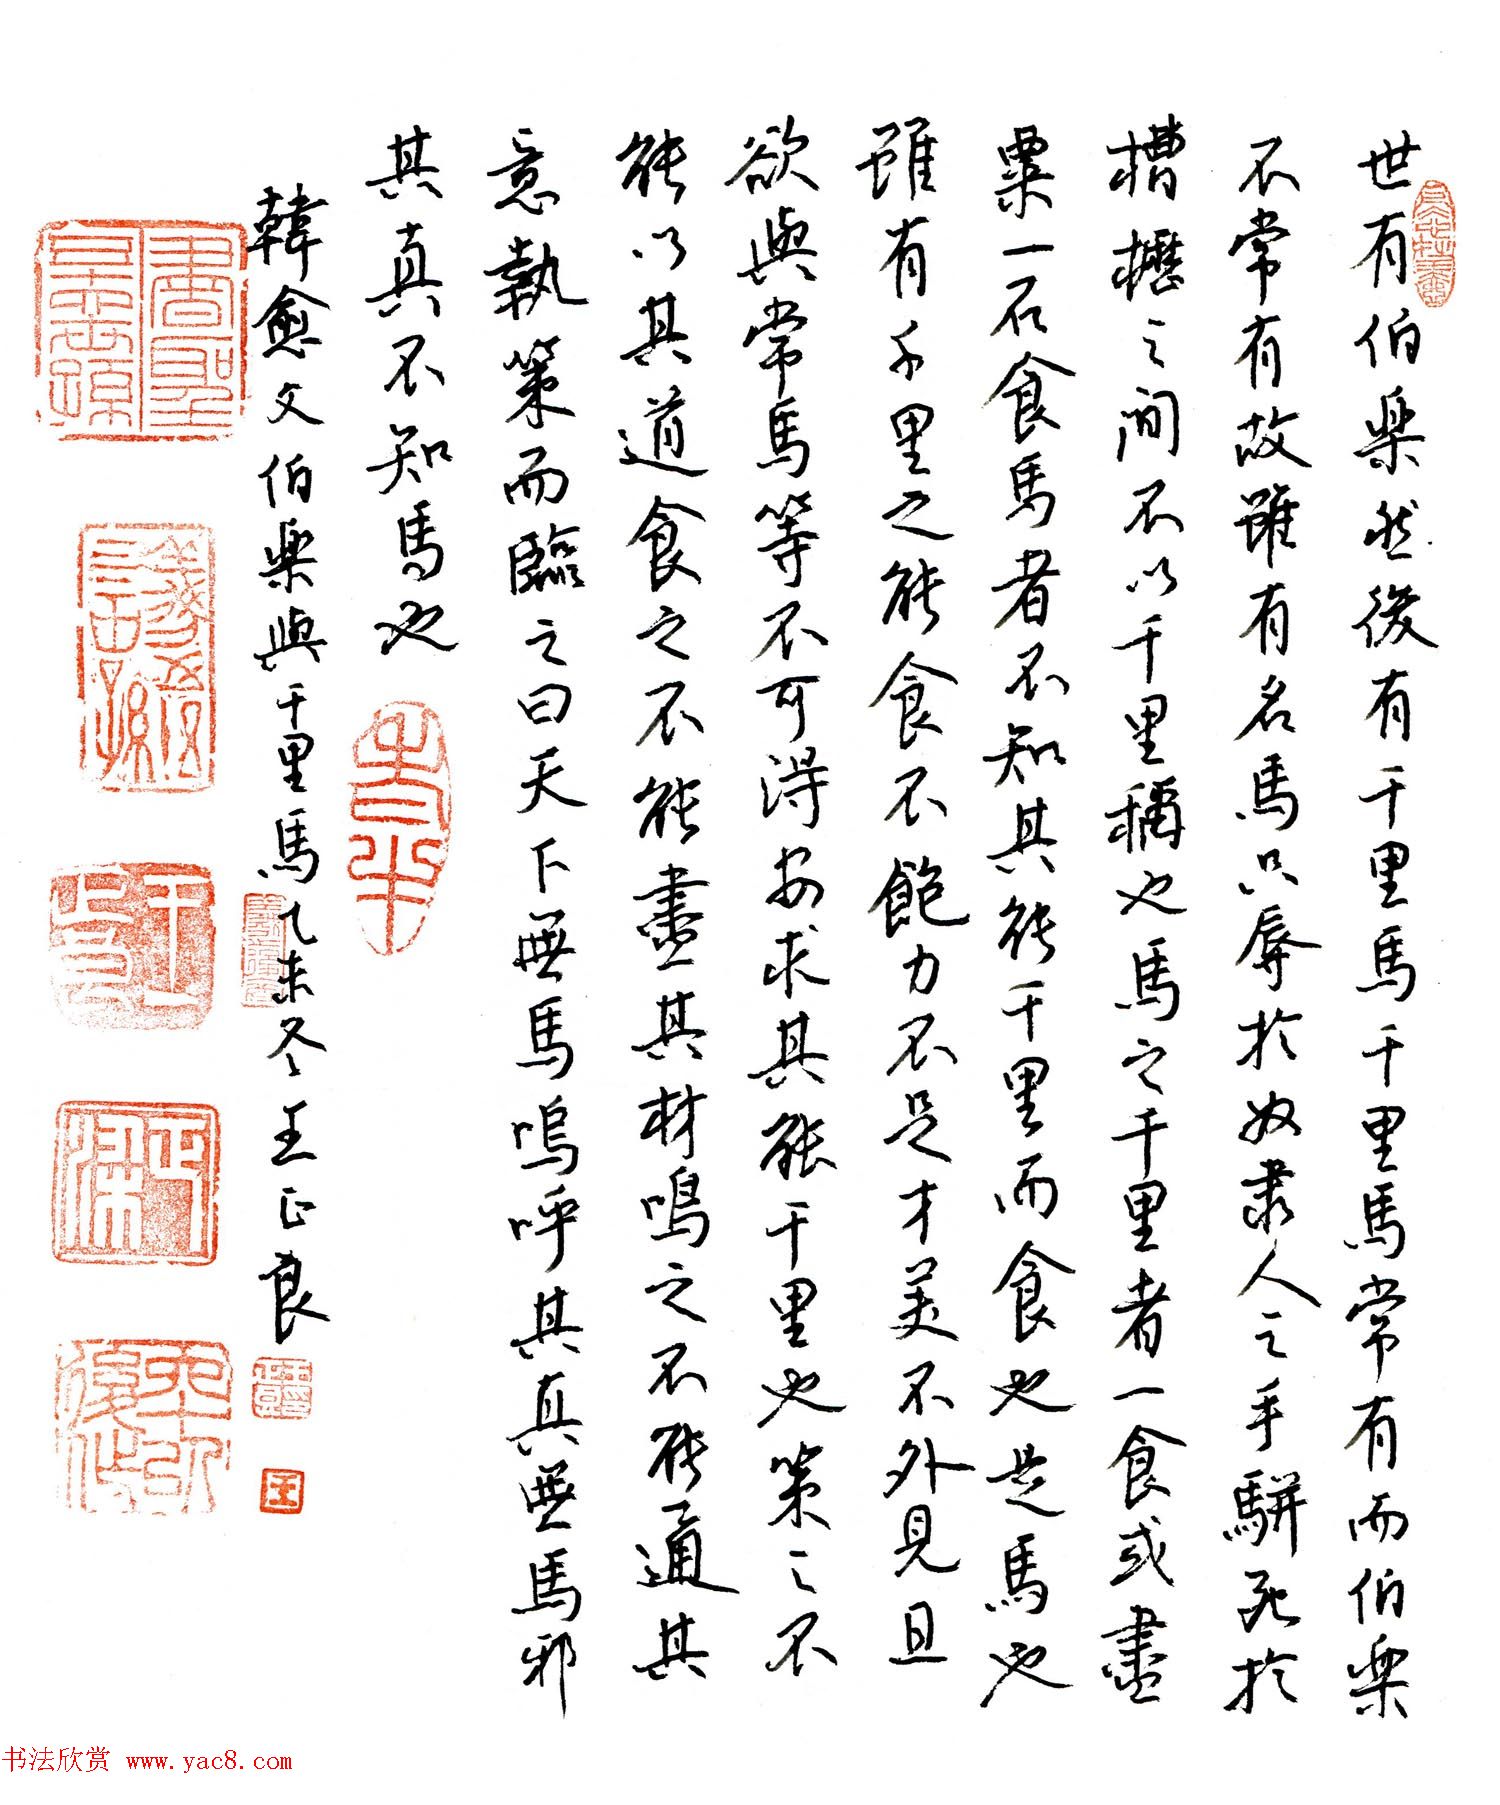 世有伯樂然後有千里馬千里馬常有而伯樂
不常有故雖有名馬只辱於奴隸人之手駢死於
槽櫪之間不以千里稱也馬之千里者一食或盡
粟一石食馬者不知其能千里而食也是馬也
雖有千里之能食不飽力不足才美不外見且
欲與常馬等不可得安求其能千里也策之不
能以其道食之不能盡其材鳴之不能通其
意執策而臨之曰天下無馬嗚呼其真無馬邪
其真不知馬也
韓愈文伯樂與千里馬乙未冬王正良
王
书法欣赏 www.yac8.com